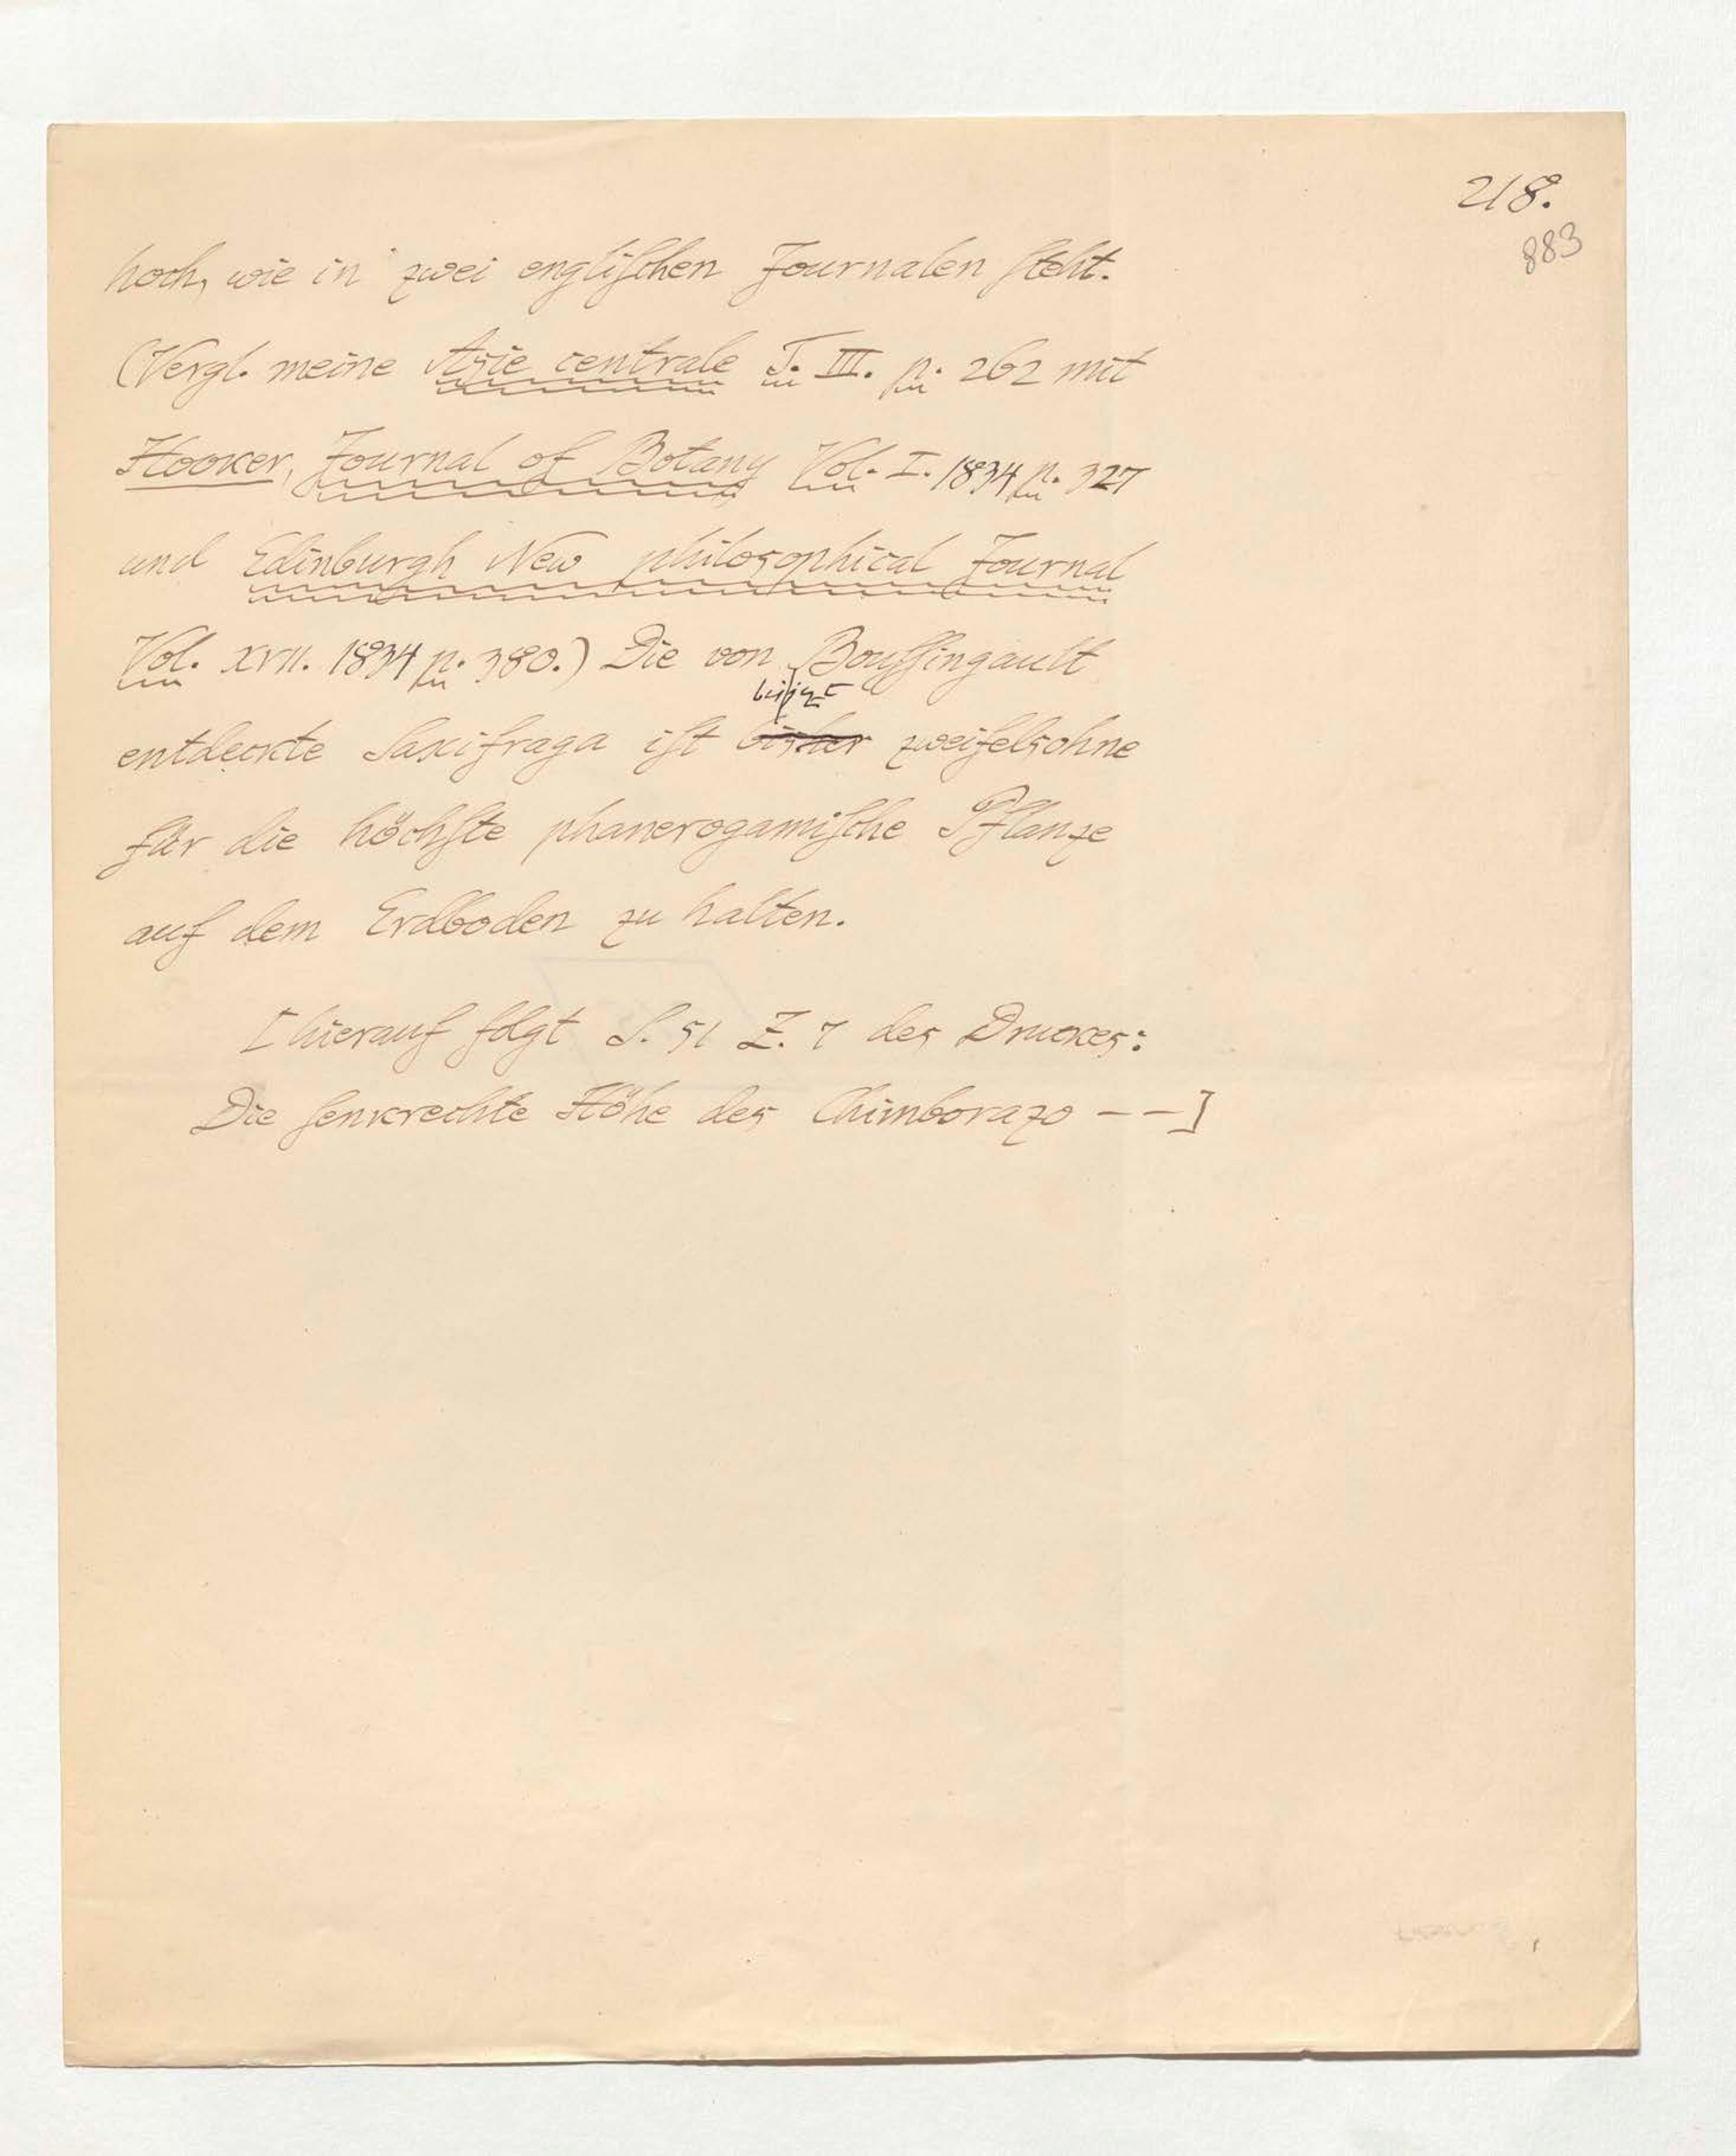 218.
883
hoch, wie in zwei engliſchen Journalen ſteht.
(Vergl. meine Asie centrale T. III. p. 262 mit
Hooker, Journal of Botany Vol. I. 1834 p. 327
und Edinburgh New philosophical Journal
Vol. XVII. 1834 p. 380.) Die von Bouſſingault
bis jezt
entdeckte Saxifraga iſt bisher zweifelsohne
für die höchſte phanerogamiſche Pflanze
auf dem Erdboden zu halten.
[hierauf folgt S. 51 Z. 7 des Druckes:
Die ſenkrechte Höhe des Chimborazo – –]